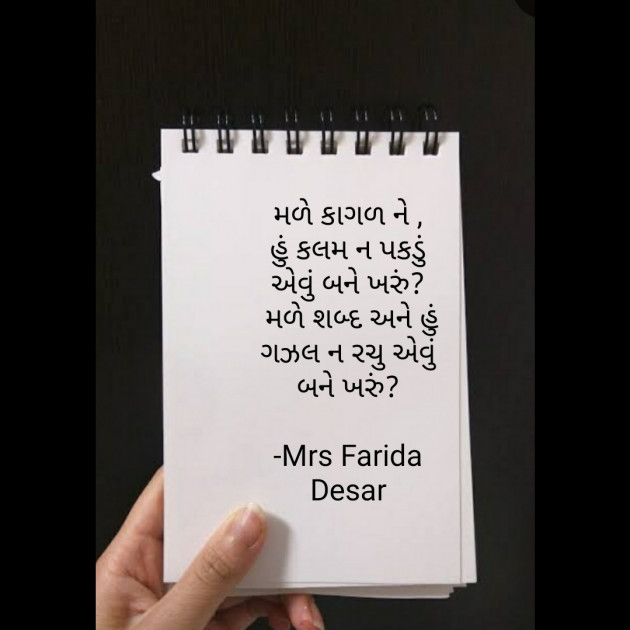 મળે કાગળ ને ,
હું કલમ ન પકડું
એવું બને ખરું?
મળે શબ્દ અને હું
ગઝલ ન રચુ એવું
બને ખરું?
-Mrs Farida
Desar